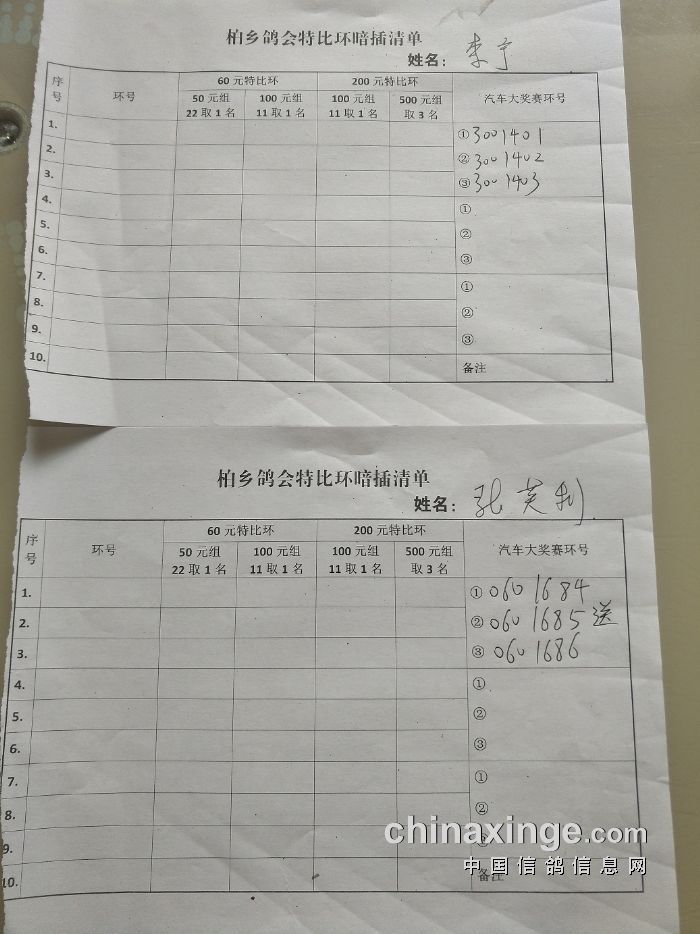 柏乡鸽会特比环暗插清单
姓名：李宁
序号 环号 60 元特比环 200 元特比环 汽车大奖赛环号
50 元组 22 取 1 名 100 元组 11 取 1 名 100 元组 11 取 1 名 500 元组 取 3 名
1. ①3001401
2. ②3001402
3. ③3001403
4. ①
5. ②
6. ③
7. ①
8. ②
9. ③
10. 备注
柏乡鸽会特比环暗插清单
姓名：张英利
序号 环号 60 元特比环 200 元特比环 汽车大奖赛环号
50 元组 22 取 1 名 100 元组 11 取 1 名 100 元组 11 取 1 名 500 元组 取 3 名
1. ①060 1684
2. ②060 1685 送
3. ③060 1686
4. ①
5. ②
6. ③
7. ①
8. ②
9. ③
10. 备注
chinaxinge.com
中国信鸽信息网